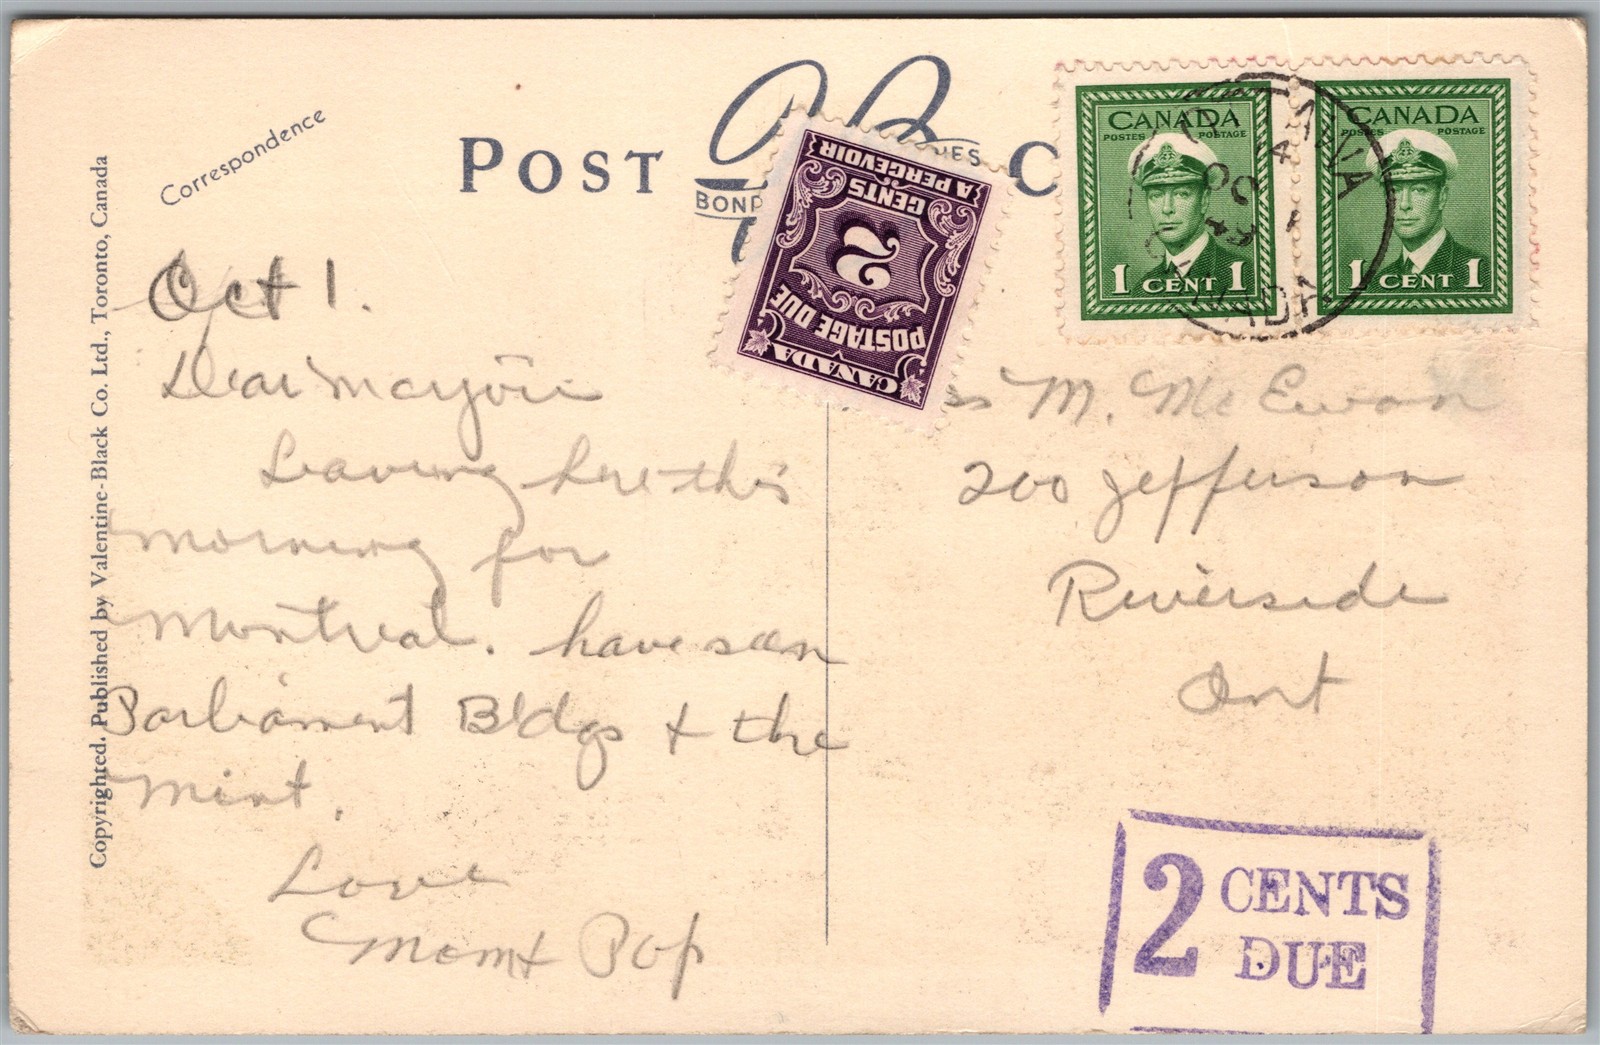 Correspondence
POST C
BOND
Copyrighted. Published by Valentine-Black Co. Ltd., Toronto, Canada
CANADA
POSTAGE DUE
2
CENTS
A PERCEVOIR
CANADA
POSTES POSTAGE
1 CENT 1
CANADA
POSTES POSTAGE
1 CENT 1
OTTAWA
4
OC 1
49
CANADA
Oct 1.
Dear Marjorie
Leaving here this
morning for
Montreal. have seen
Parliament Bldgs + the
Mint.
Love
Mom + Pop
M. McEwan
200 Jefferson
Riverside
Ont
2 CENTS
DUE